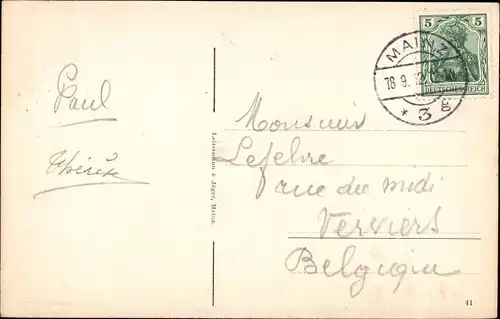 Paul
Thérèse
Leiterman & Jäger, Mainz.
5 5
DEUTSCHES REICH
MAINZ
18 9. 12
* 3
Monsieur
Lefebre
rue du midi
Verviers
Belgique
41